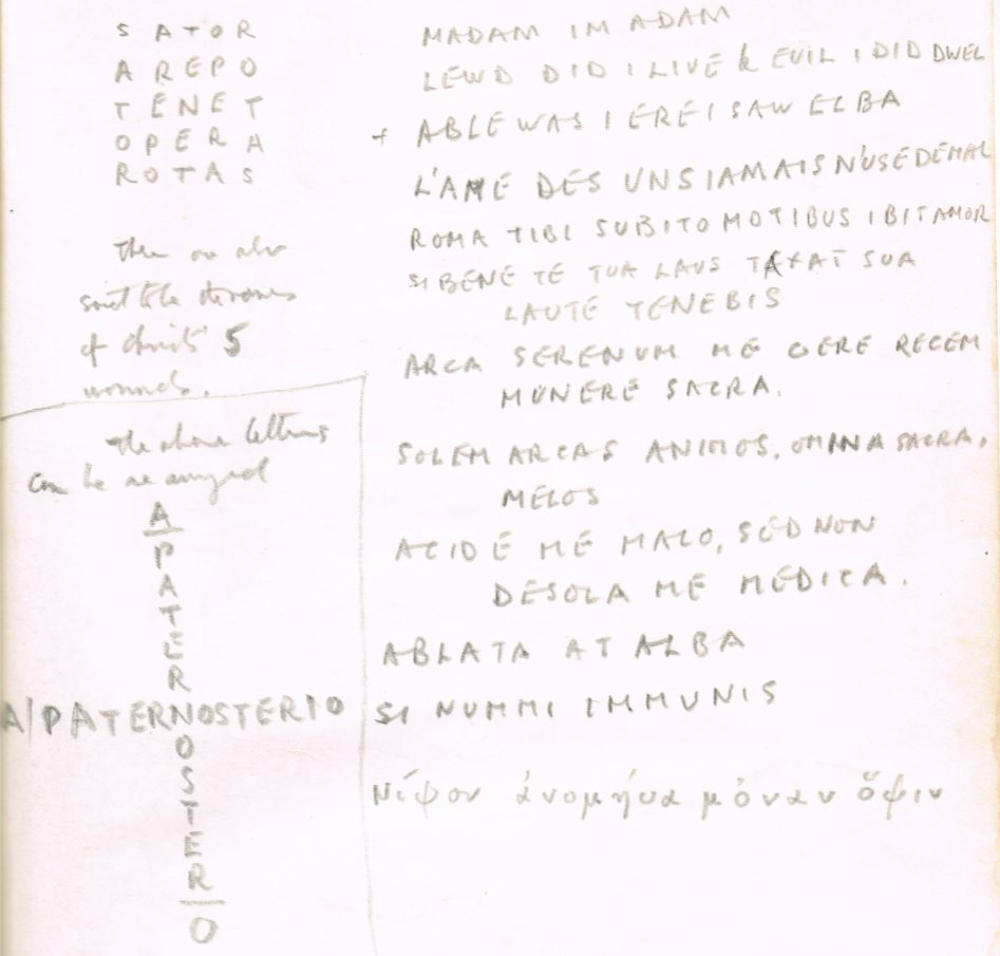 SATOR
AREPO
TENET
OPERA
ROTAS
these are also
said to be the names
of Christ's 5
wounds.
the above letters
can be rearranged
A
P
A
T
E
R
A/PATERNOSTER/O
O
S
T
E
R
O
MADAM IM ADAM
LEWD DID I LIVE & EVIL I DID DWEL
+ ABLE WAS I ERE I SAW ELBA
L'AME DES UNS IAMAIS N'USE DE MAL
ROMA TIBI SUBITO MOTIBUS IBIT AMOR
SI BENE TE TUA LAUS TAXAT SUA
LAUTE TENEBIS
ARCA SERENUM ME GERE REGEM
MUNERE SACRA.
SOLEM ARCAS ANIMOS, OMINA SACRA,
MELOS
ACIDE ME MALO, SED NON
DESOLA ME MEDICA.
ABLATA AT ALBA
SI NUMMI IMMUNIS
Νίψον ἀνομήμα μὀναν ὄψιν